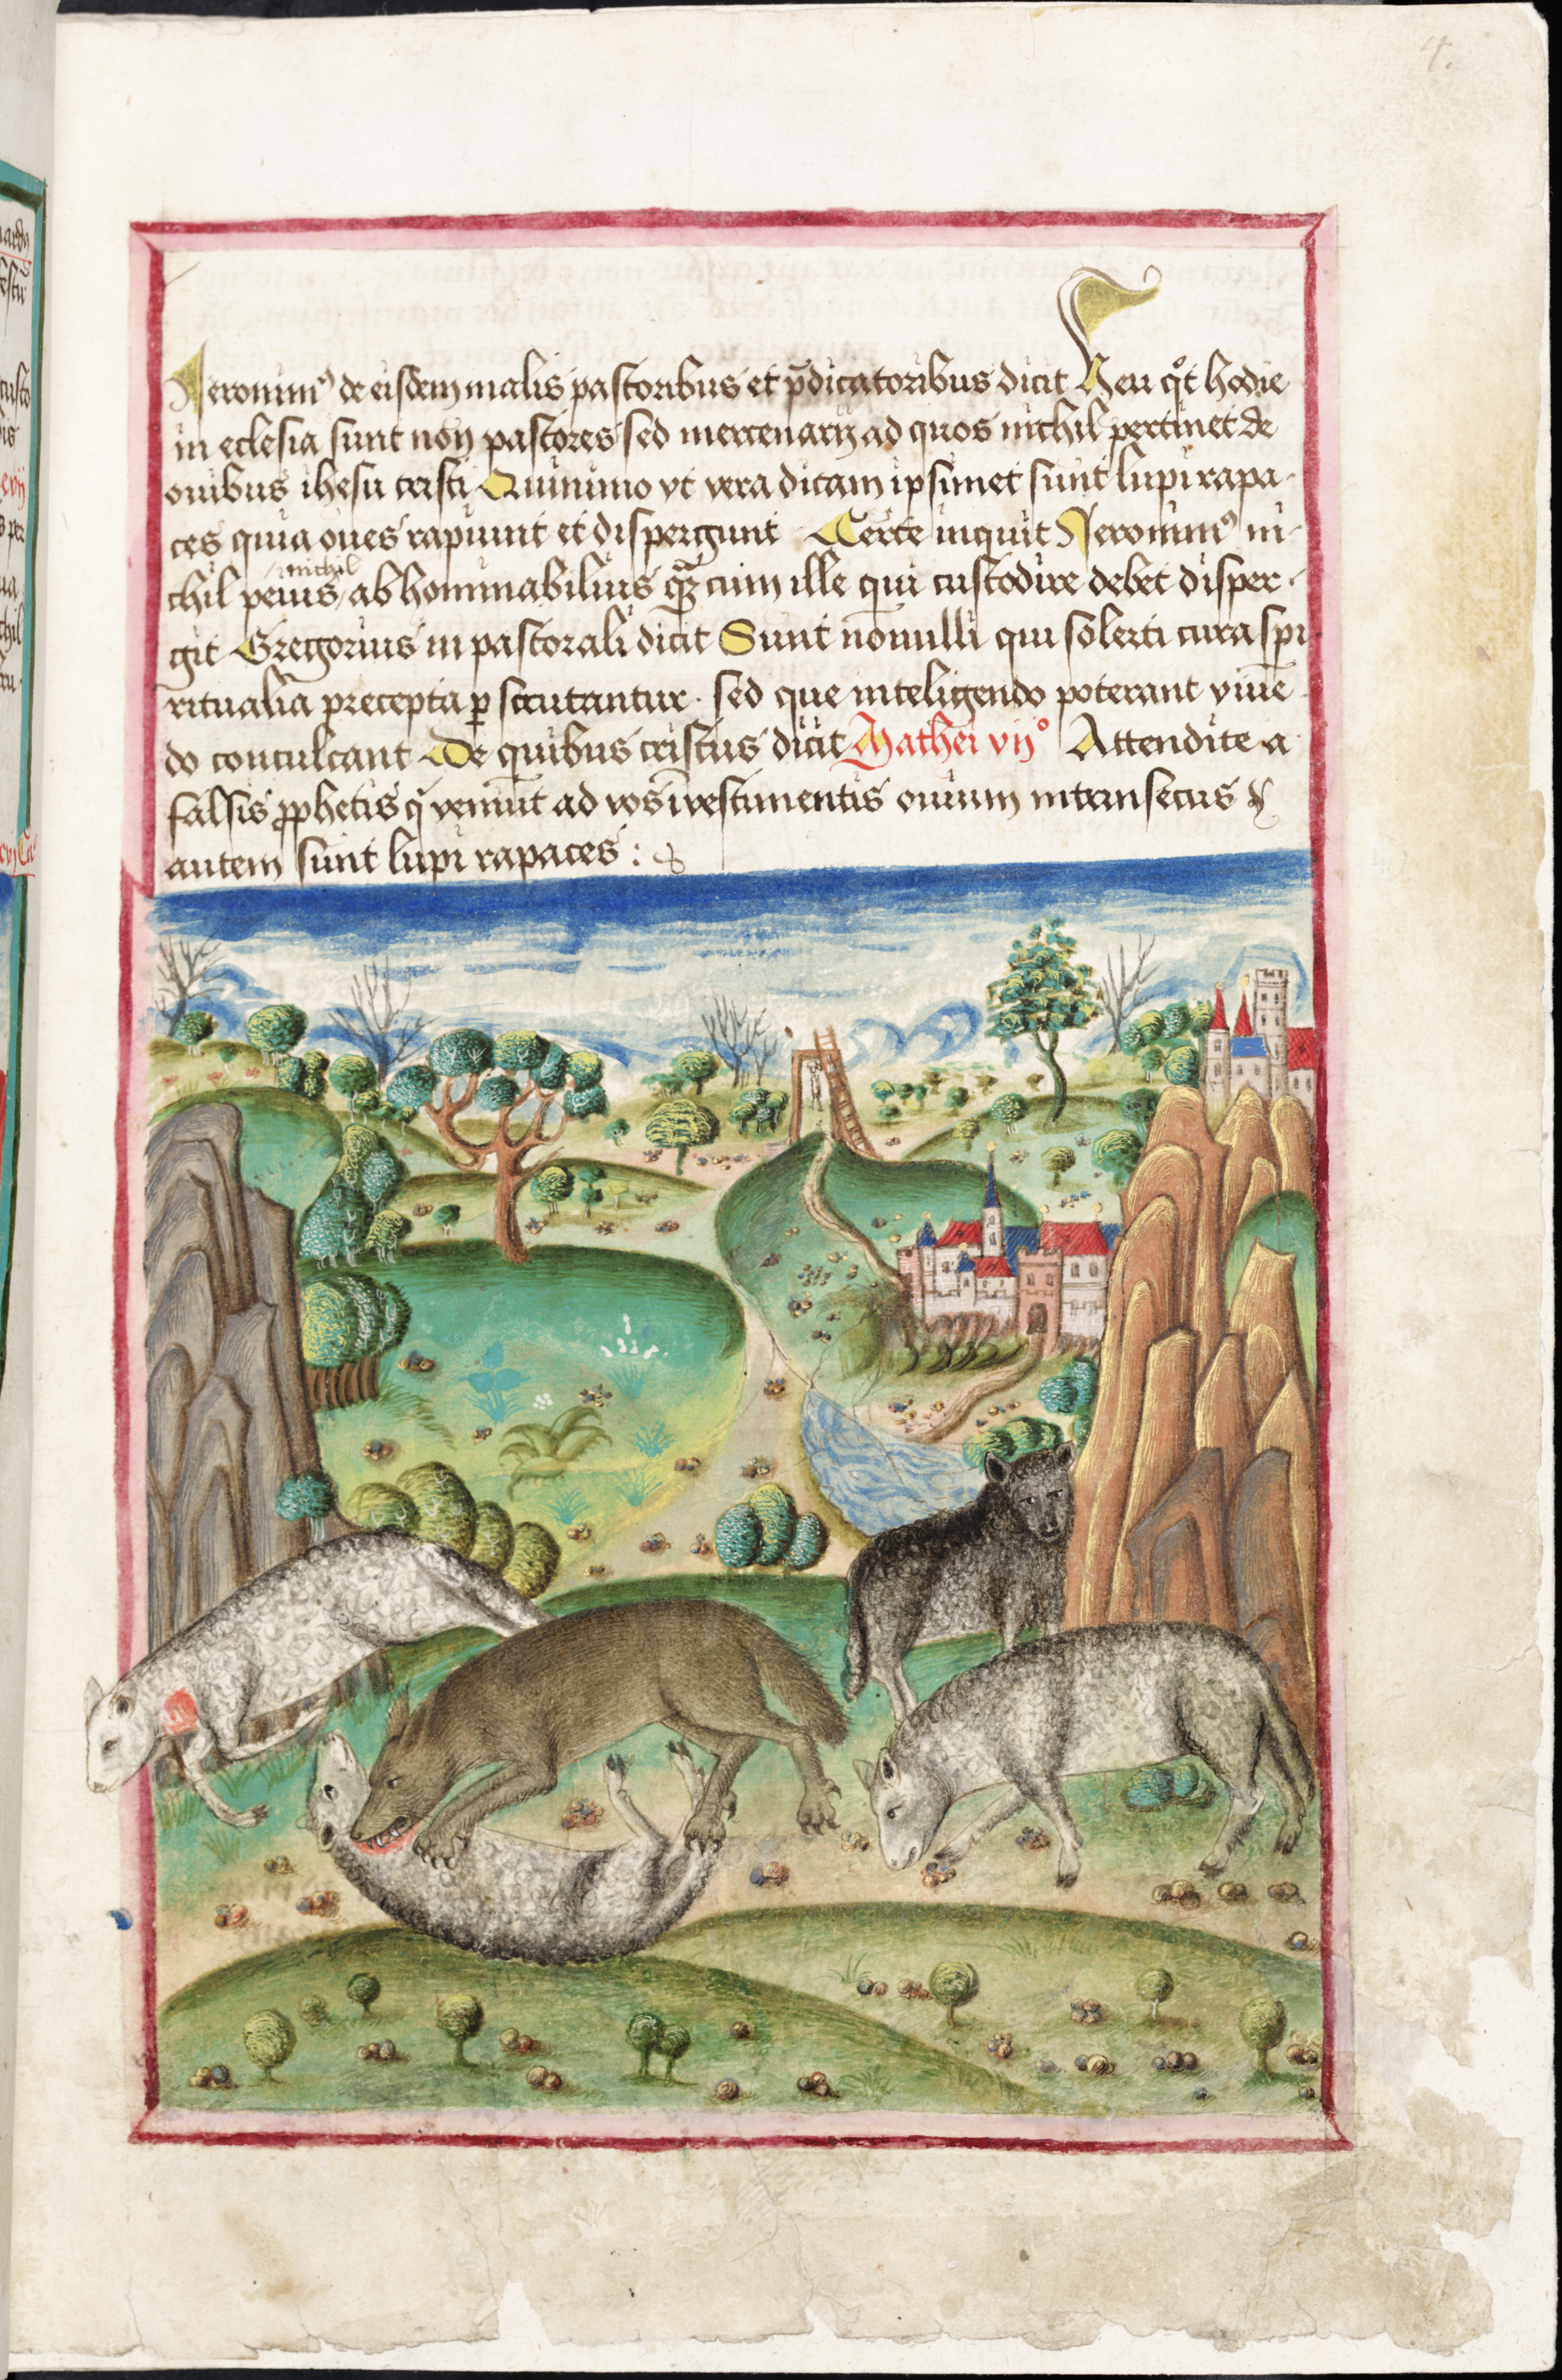 4.
Jeronimꝰ de eisdem malis pastoribus et p̄dicatoribus dicit Heu qͦt hodie
in eclesia sunt non pastores sed mercenarij ad quos nichil pertinet de
ouibus ihesu cristi Quinimo vt vera dicam ipsimet sunt lupi rapa-
ces quia oues rapiunt et dispergunt Certe inquit Jeronimꝰ ni-
chil peius / nichil abhominabilius qᷓꝫ cum ille qui custodire debet disper-
git Gregorius in pastorali dicit Sunt nōnulli qui solerti cura spi-
ritualia precepta ꝑscrutantur · sed que inteligendo poterant viuē-
do conculcant De quibus cristus dicit Mathei vijͦ Attendite a
falsis ꝓphetis q̇ veniūt ad vos ī vestimentis ouium intrinsecus
autem sunt lupi rapaces :